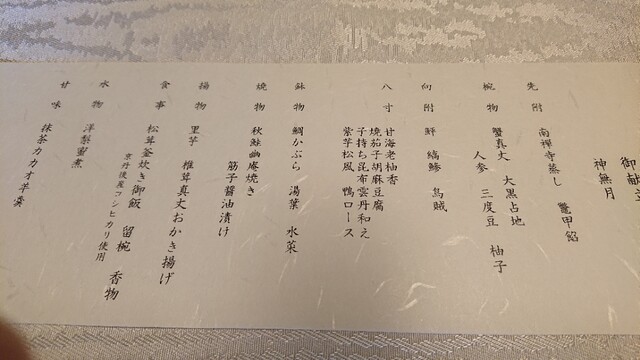 御献立
神無月
先附
南禅寺蒸し 鼈甲餡
椀物
蟹真丈 大黒占地
人参 三度豆 柚子
向附
鮃 縞鯵 烏賊
八寸
甘海老柚香
焼茄子胡麻豆腐
子持ち昆布雲丹和え
紫芋松風 鴨ロース
鉢物
鯛かぶら 湯葉 水菜
焼物
秋鮭幽庵焼き
筋子醤油漬け
揚物
里芋 椎茸真丈おかき揚げ
食事
松茸釜炊き御飯 留椀 香物
京丹後産コシヒカリ使用
水物
洋梨蜜煮
甘味
抹茶カカオ羊羹